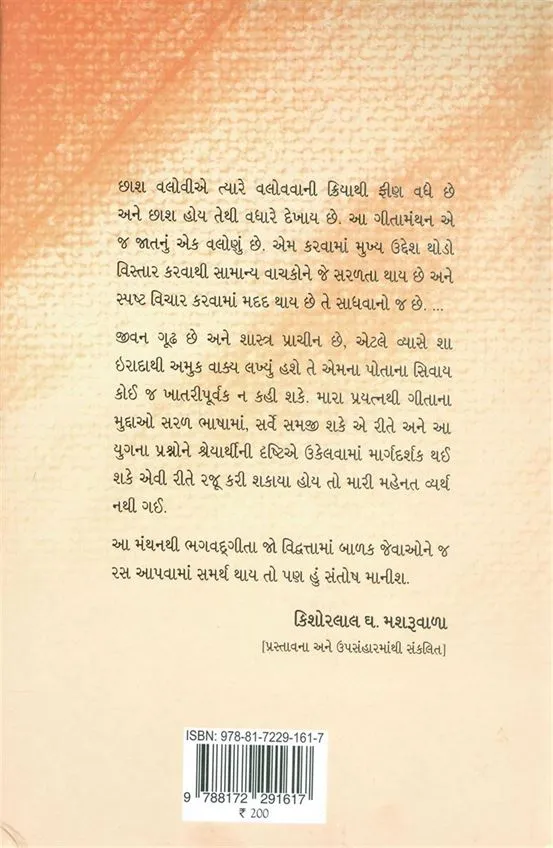 છાશ વલોવીએ ત્યારે વલોવવાની ક્રિયાથી ફીણ વધે છે
અને છાશ હોય તેથી વધારે દેખાય છે. આ ગીતામંથન એ
જ જાતનું એક વલોણું છે. એમ કરવામાં મુખ્ય ઉદ્દેશ થોડો
વિસ્તાર કરવાથી સામાન્ય વાચકોને જે સરળતા થાય છે અને
સ્પષ્ટ વિચાર કરવામાં મદદ થાય છે તે સાધવાનો જ છે. ...
જીવન ગૂઢ છે અને શાસ્ત્ર પ્રાચીન છે, એટલે વ્યાસે શા
ઇરાદાથી અમુક વાક્ય લખ્યું હશે તે એમના પોતાના સિવાય
કોઈ જ ખાતરીપૂર્વક ન કહી શકે. મારા પ્રયત્નથી ગીતાના
મુદ્દાઓ સરળ ભાષામાં, સર્વે સમજી શકે એ રીતે અને આ
યુગના પ્રશ્નોને શ્રેયાર્થીની દૃષ્ટિએ ઉકેલવામાં માર્ગદર્શક થઈ
શકે એવી રીતે રજૂ કરી શકાયા હોય તો મારી મહેનત વ્યર્થ
નથી ગઈ.
આ મંથનથી ભગવદ્ગીતા જો વિદ્વત્તામાં બાળક જેવાઓને જ
રસ આપવામાં સમર્થ થાય તો પણ હું સંતોષ માનીશ.
કિશોરલાલ ઘ. મશરૂવાળા
[પ્રસ્તાવના અને ઉપસંહારમાંથી સંકલિત]
ISBN: 978-81-7229-161-7
9 788172 291617
₹ 200